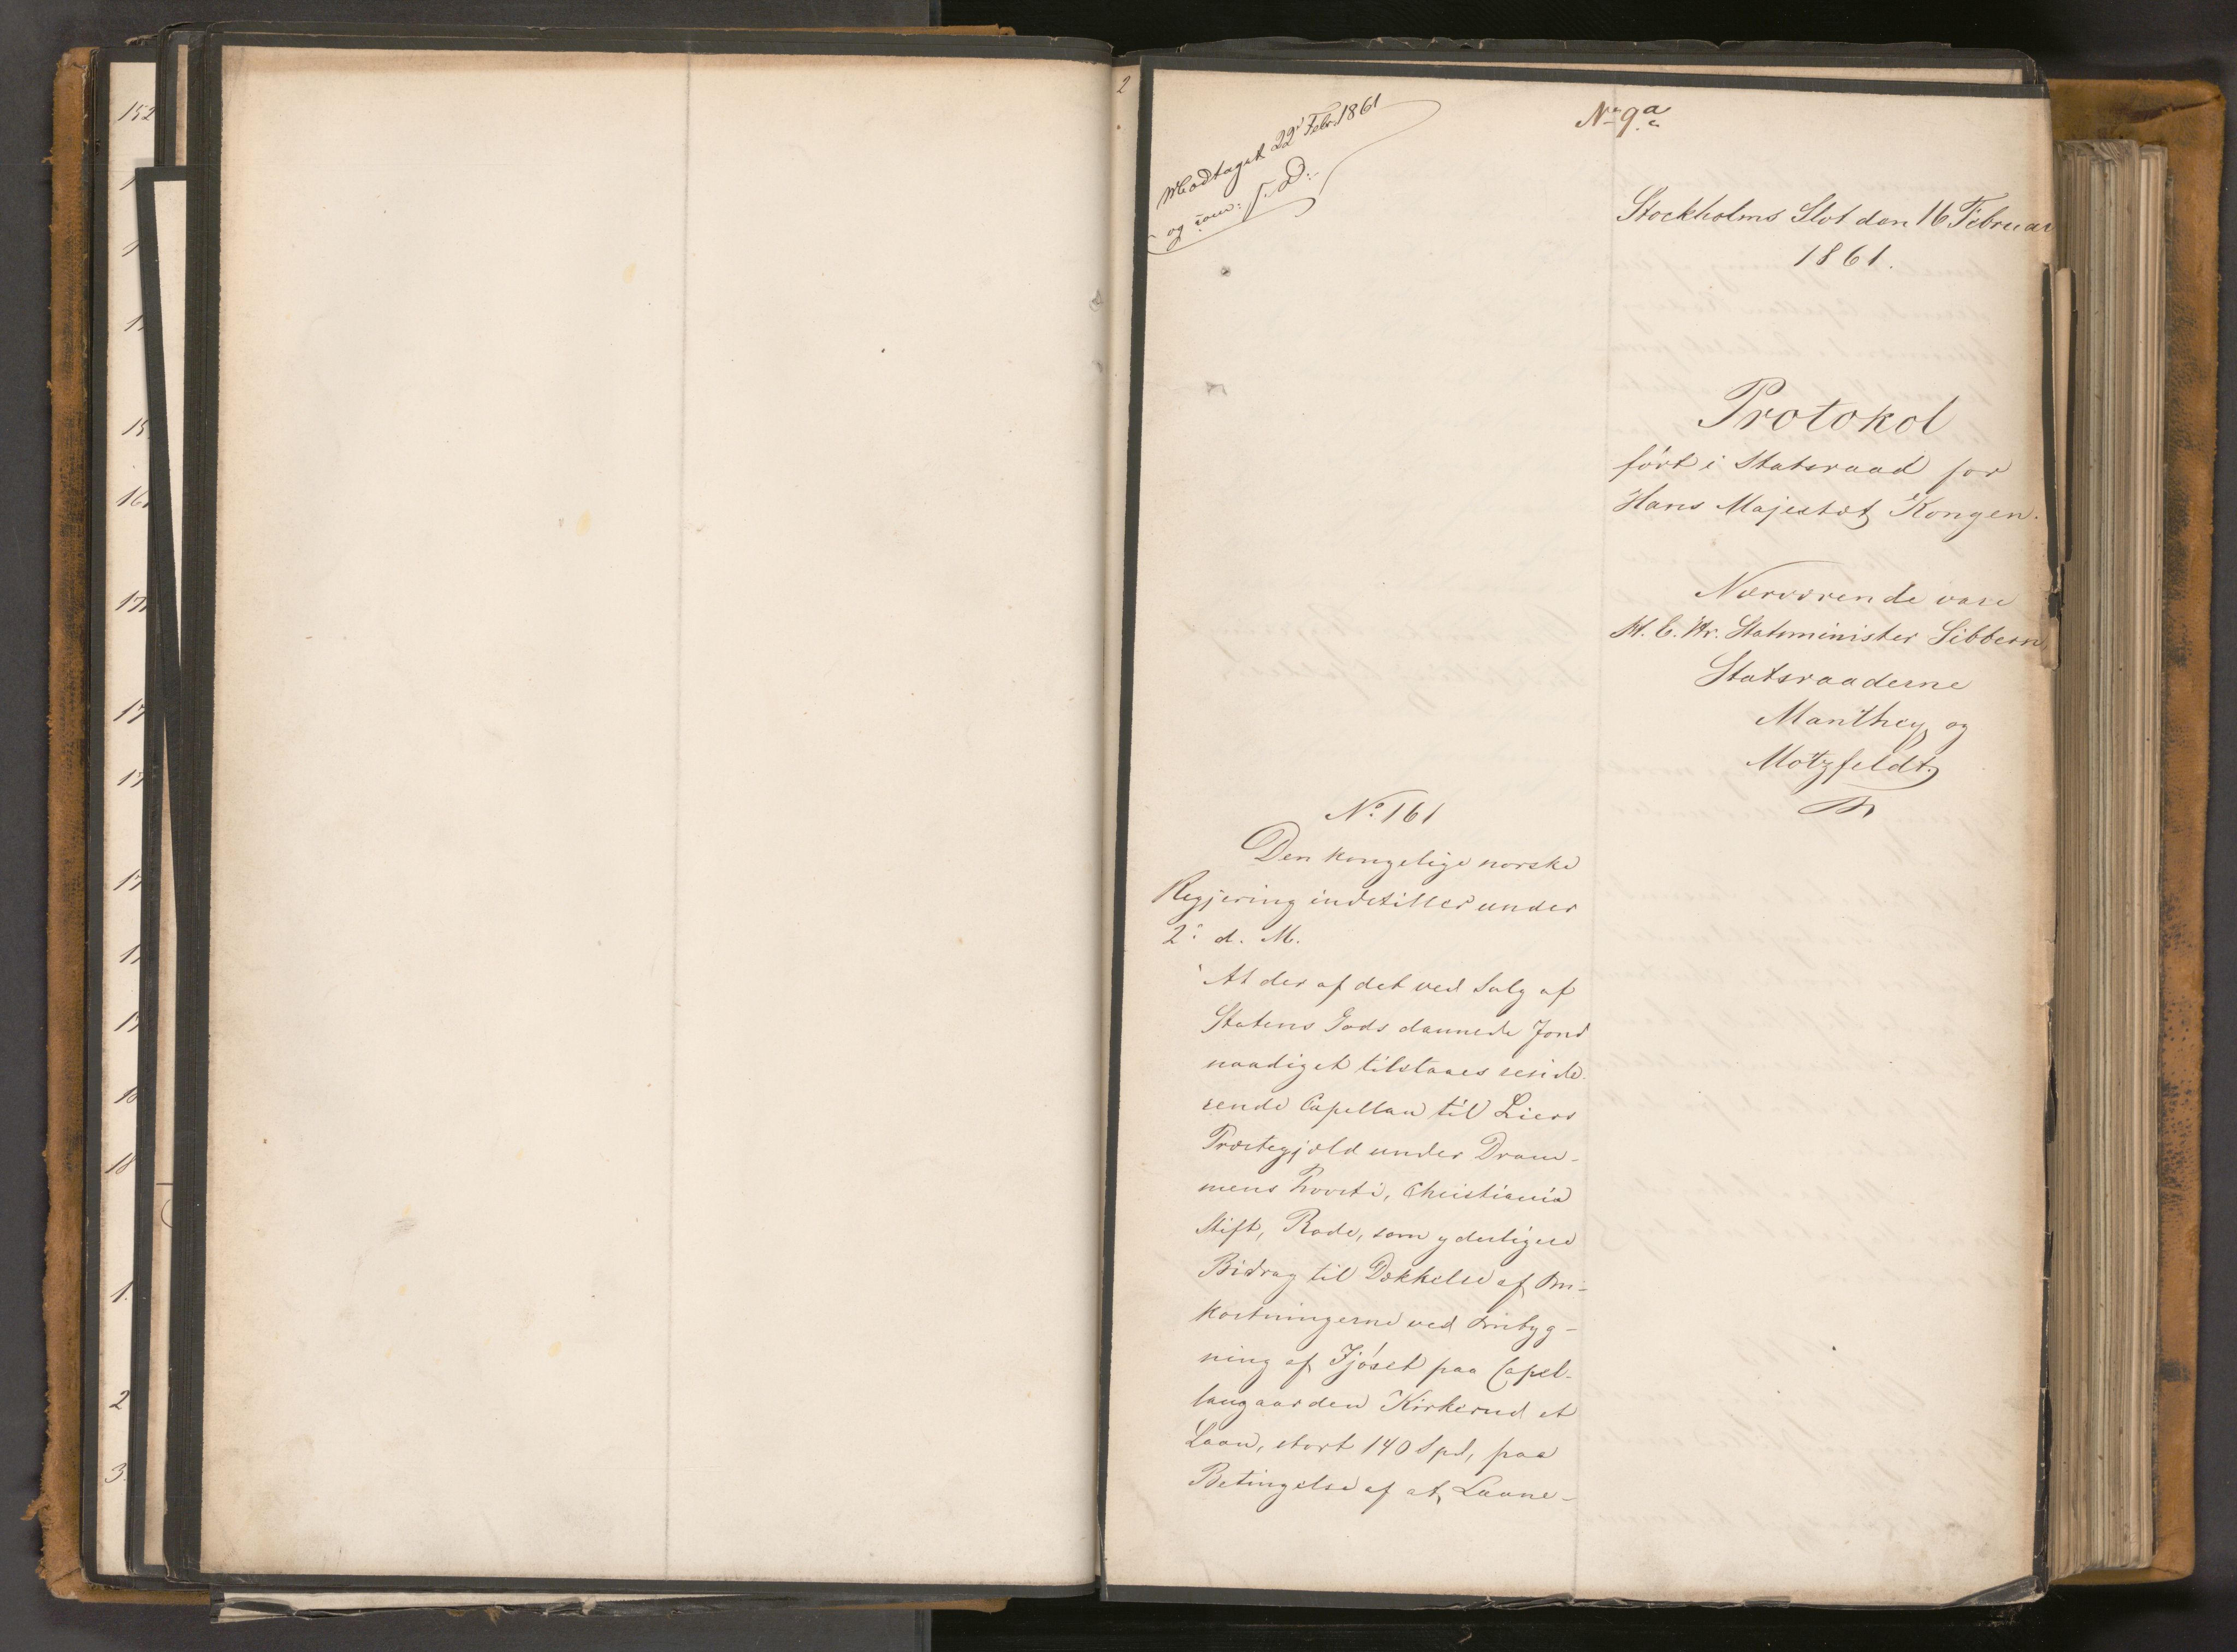 Modtaget 22d Febr. 1861
og
No 9a
Stockholms Slot den 16 Februar
1861.
Protokol
ført i Statsraad for
Hans Majestæt Kongen.
Nærværende vare
H. E. Hr. Statsminister Sibbern,
Statsraaderne
Manthey og
Motzfeldt.
No 161
Den kongelige norske
Regjering indstiller under
2. d. M.
At der af det ved Salg af
Statens Gods dannede Fond
naadigst tilstaaes reside-
rende Capellan til Liers
Præstegjæld under Dram-
mens Provsti, Christiania
Stift, Rode, som yderligere
Bidrag til Dækkelse af Om-
kostningerne ved Ombyg-
ning af Fjøset paa Capel-
langaarden Kirkerud et
Laan, stort 140 Spd, paa
Betingelse af at Laane-
152
2
3.